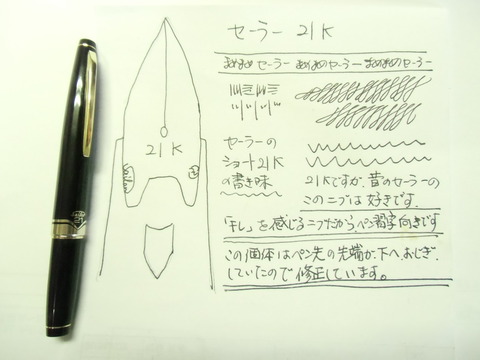 セーラー 21K
まめまめ セーラー まめまめのセーラー まめまめのセーラー
セーラーの
ショート21K
の書き味
21Kですが、昔のセーラーの
このニブは好きです。
「キレ」を感じるニブだから、ペン習字向きです
この個体はペン先の先端が、下へおじぎ、
していたので修正しています。
21K
Sailor